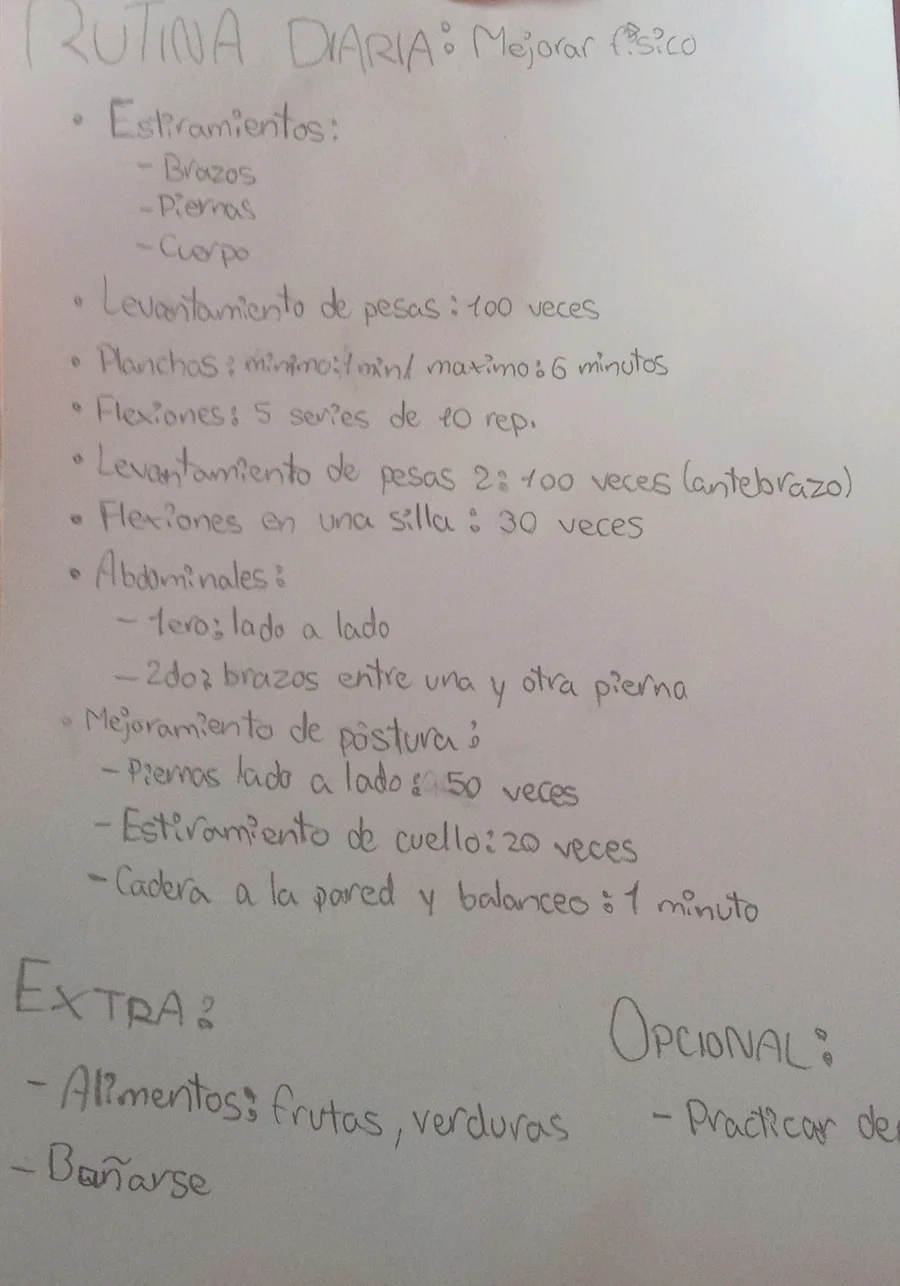 RUTINA DIARIA: Mejorar físico
• Estiramientos:
- Brazos
- Piernas
- Cuerpo
• Levantamiento de pesas: 100 veces
• Planchas: minimo: 1 min/ maximo: 6 minutos
• Flexiones: 5 series de 10 rep.
• Levantamiento de pesas 2: 100 veces (antebrazo)
• Flexiones en una silla: 30 veces
• Abdominales:
- 1ero: lado a lado
- 2do: brazos entre una y otra pierna
• Mejoramiento de postura:
- Piernas lado a lado: 50 veces
- Estiramiento de cuello: 20 veces
- Cadera a la pared y balanceo: 1 minuto
EXTRA:
- Alimentos: frutas, verduras
- Bañarse
OPCIONAL:
- Practicar